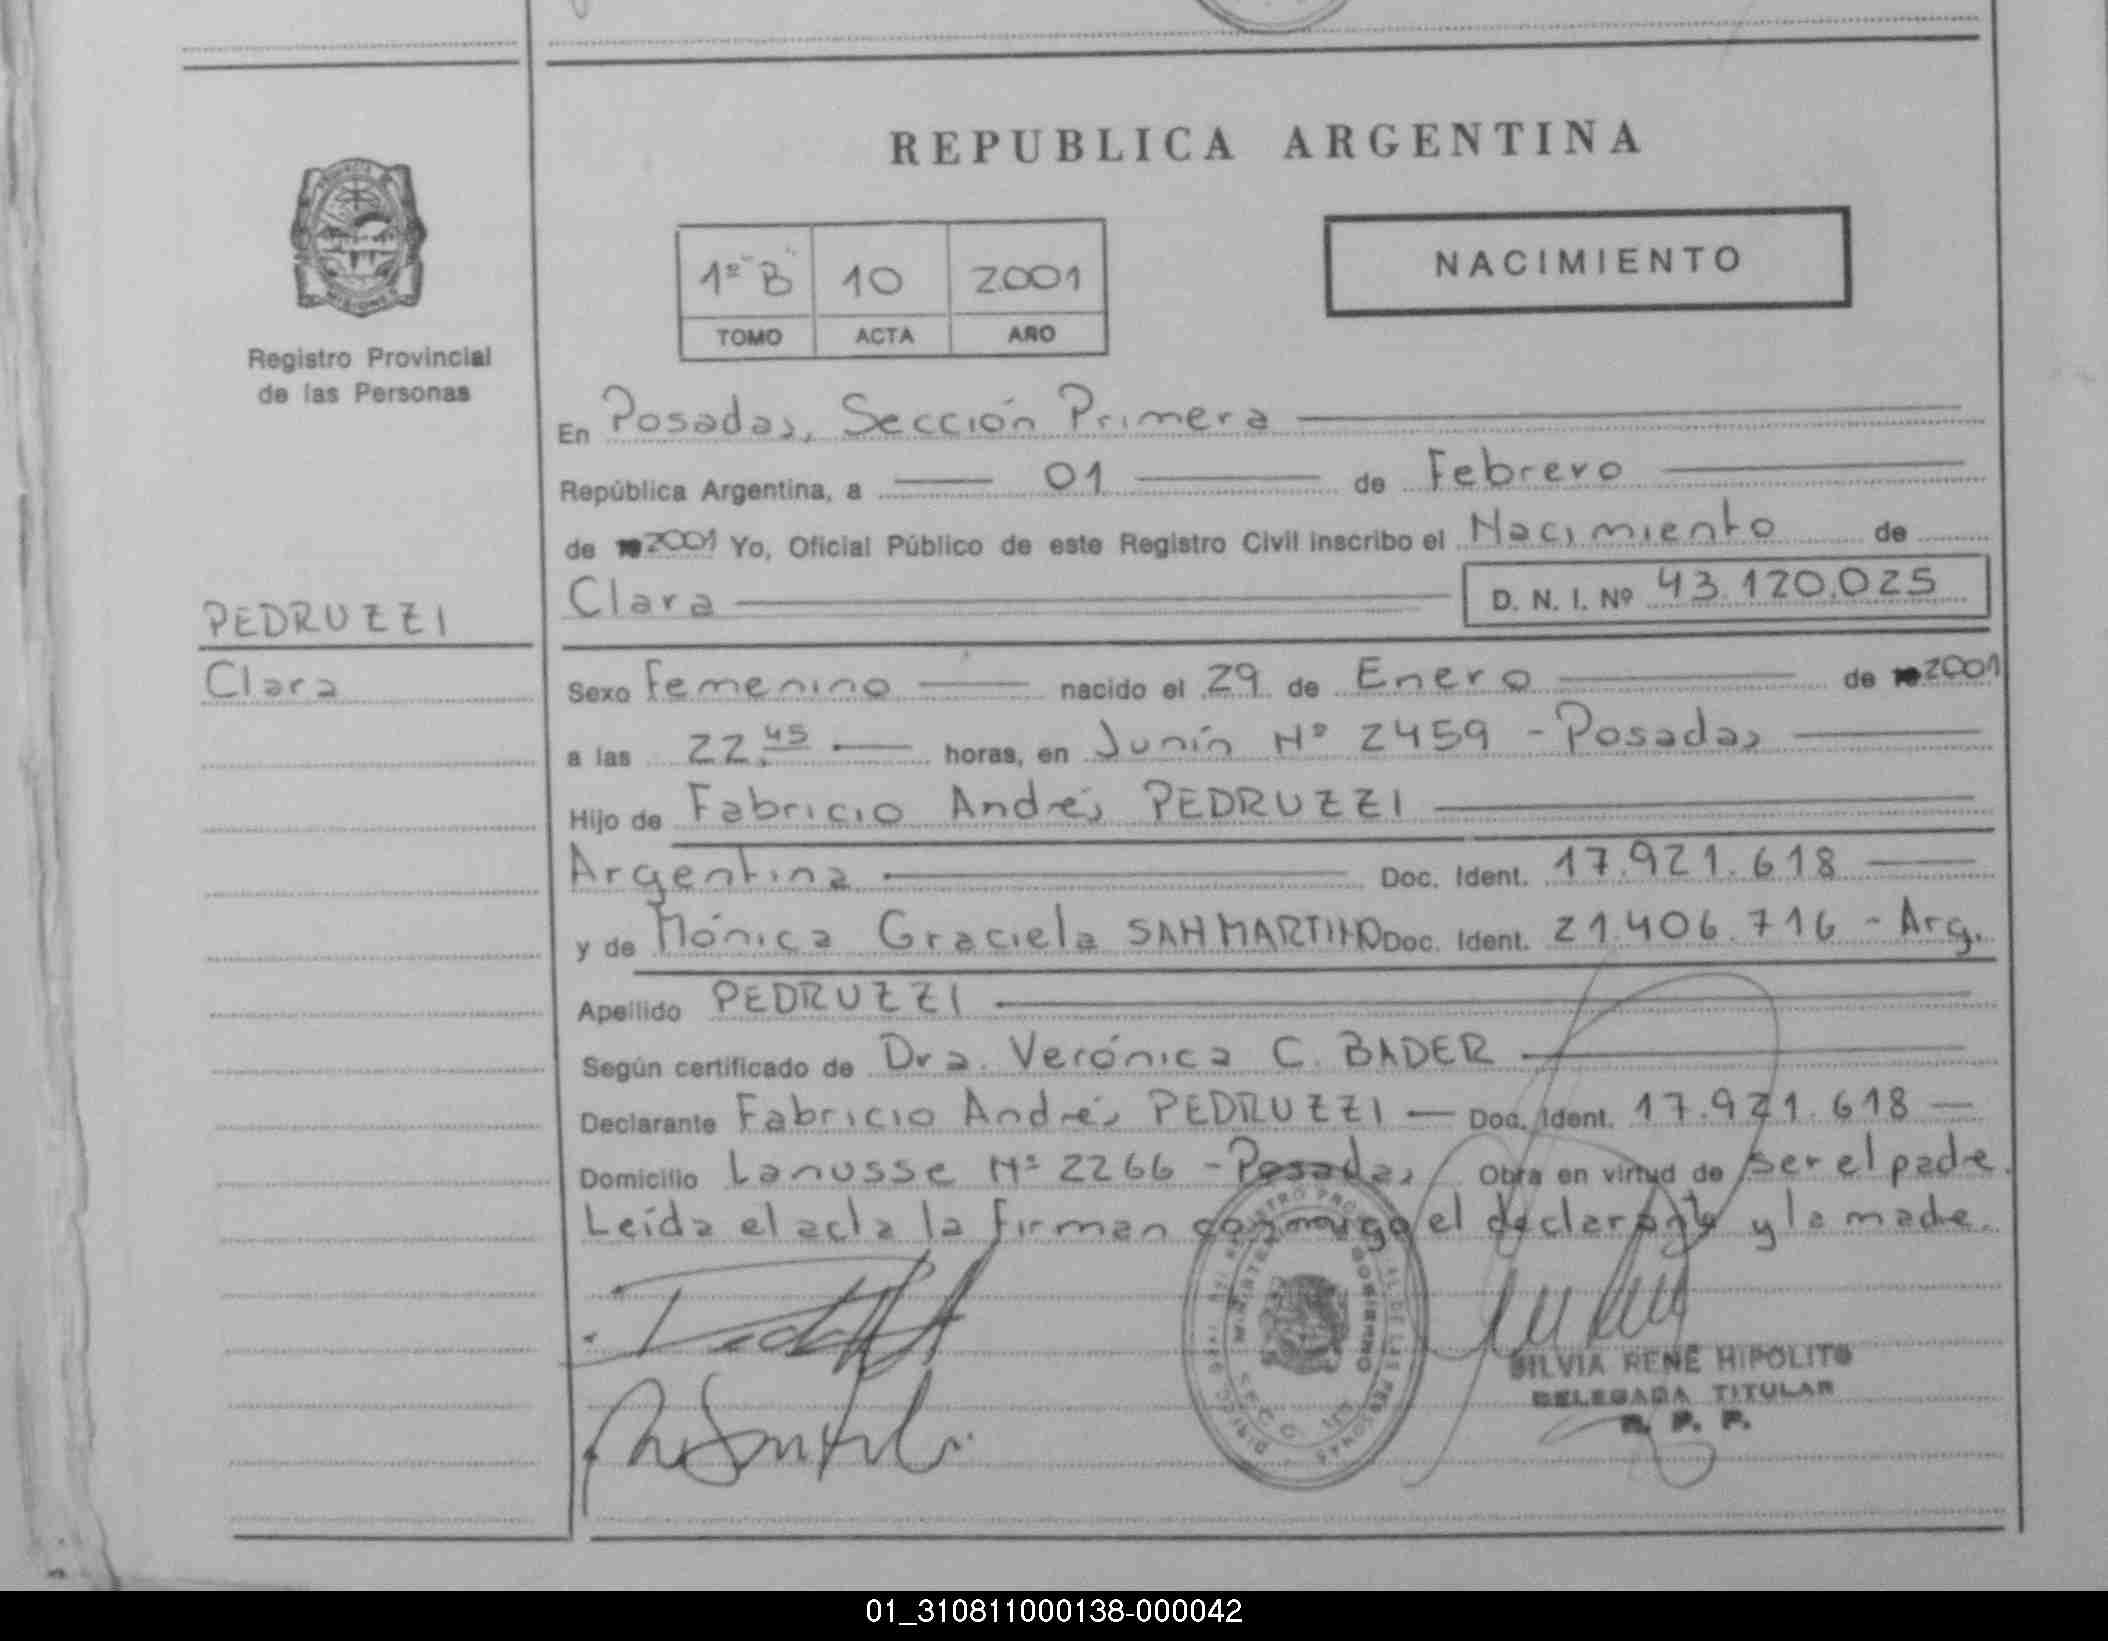 REPUBLICA ARGENTINA
NACIMIENTO
1º "B" 10 2001
TOMO ACTA AÑO
Registro Provincial
de las Personas
En Posadas, Sección Primera
República Argentina, a 01 de Febrero
de 2001 Yo, Oficial Público de este Registro Civil inscribo el Nacimiento de
Clara D. N. I. Nº 43.120.025
PEDRUZZI
Clara
Sexo Femenino nacido el 29 de Enero de 2001
a las 22.45 horas, en Junín Nº 2459 - Posadas
Hijo de Fabricio Andrés PEDRUZZI
Argentina Doc. Ident. 17.921.618
y de Mónica Graciela SANMARTINO Doc. Ident. 21.406.716 - Arg.
Apellido PEDRUZZI
Según certificado de Dra. Verónica C. BADER
Declarante Fabricio Andrés PEDRUZZI Doc. Ident. 17.921.618
Domicilio Lanusse Nº 2266 - Posadas Obra en virtud de ser el padre.
Leída el acta la firman conmigo el declarante y la madre.
SILVIA RENE HIPOLITO
DELEGADA TITULAR
R. P. P.
01_310811000138-000042